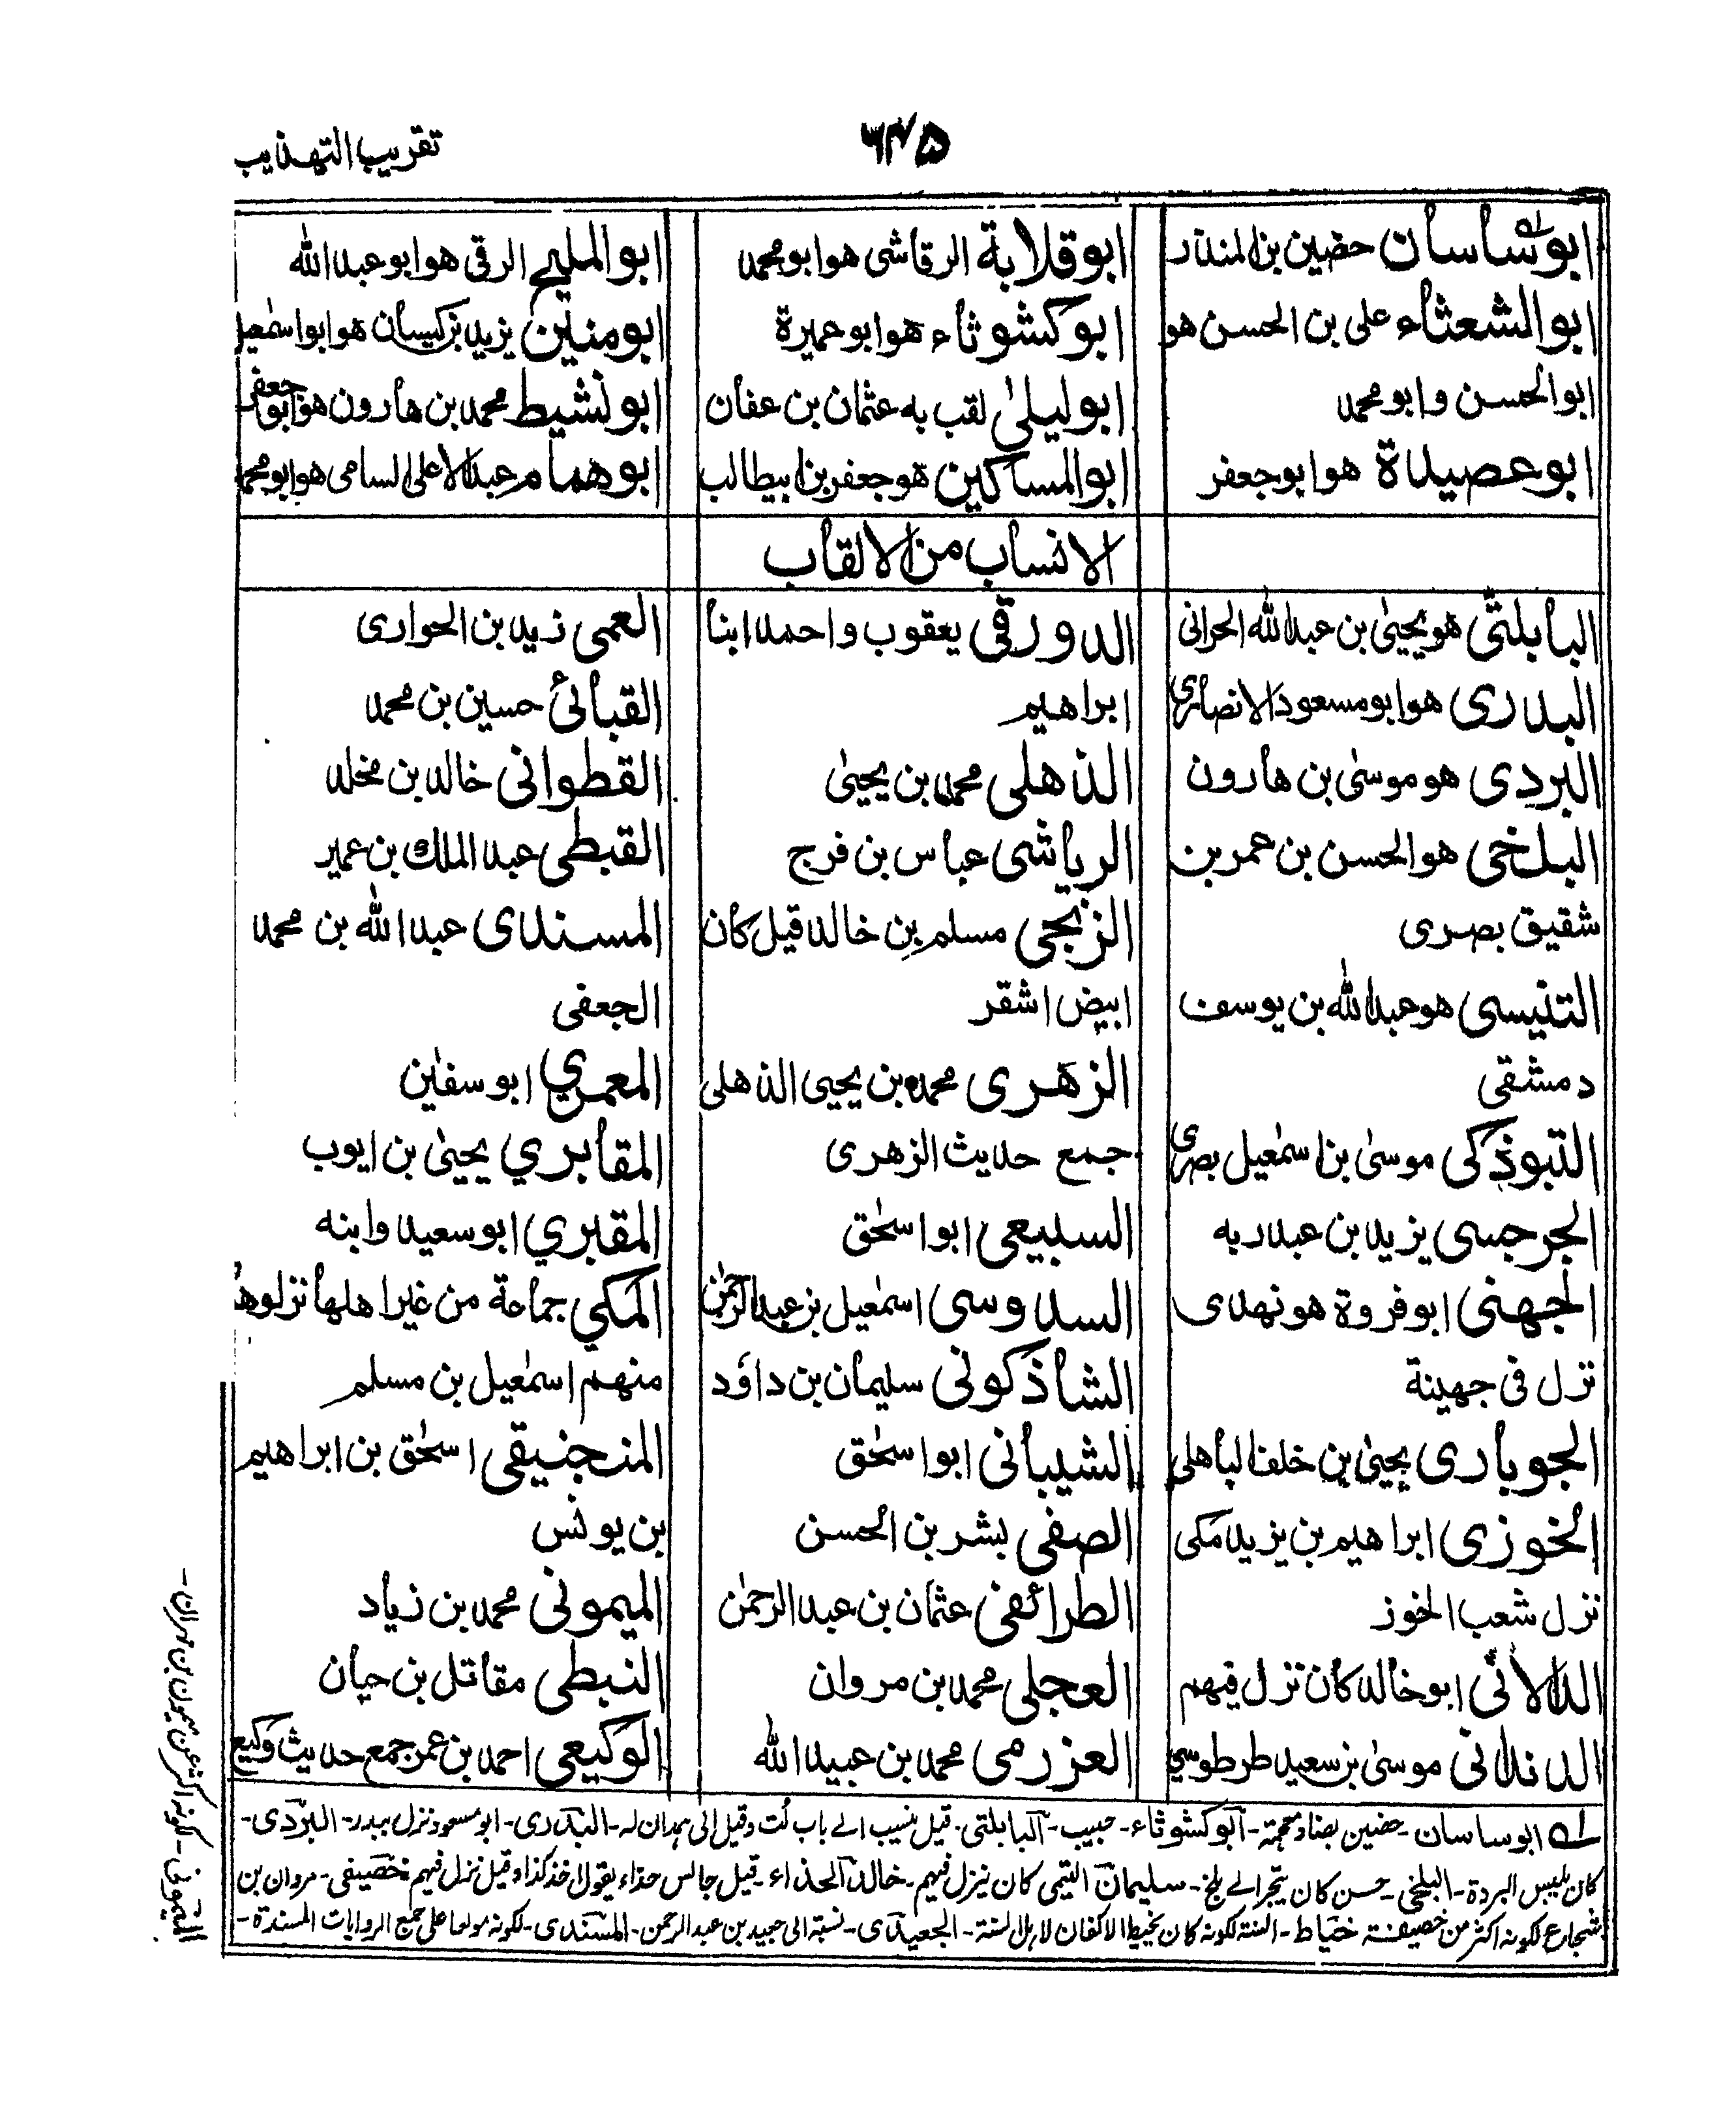 تقريب التهذيب
٦٤٥
ابو ساسان حضين بن المنذر
ابو الشعثاء على بن الحسن هو
ابو الحسن و ابو محمد
ابو عصيدة هو ابو جعفر
ابو قلابة الرقاشى هو ابو محمد
ابو كشوثاء هو ابو حميرة
ابو ليلىٰ لقب به عثمان بن عفان
ابو المساكين هو جعفر بن ابيطالب
ابو المليح الرقى هو ابو عبد الله
ابو منين يزيد بن كيسان هو ابو اسمٰعيل
ابو نشيط محمد بن هارون هو ابو جعفر
ابو همام عبد الاعلى السامى هو ابو محمد
الانساب من الالقاب
البابلتّى هو يحيىٰ بن عبد الله الحرانى
البدرى هو ابو مسعود الانصارى
البردى هو موسىٰ بن هارون
البلخى هو الحسن بن عمر بن
شقيق بصرى
التنيسى هو عبد الله بن يوسف
دمشقى
التبوذكى موسىٰ بن اسمٰعيل بصرى
الجرجسى يزيد بن عبد ربه
الجهنى ابو فروة هو نهدى
نزل فى جهينة
الجوبارى يحيىٰ بن خلف الباهلى
الخوزى ابراهيم بن يزيد مكى
نزل شعب الخوز
الدالانى ابو خالد كان نزل فيهم
الدندانى موسىٰ بن سعيد طرطوسي
الدورقى يعقوب و احمد ابنا
ابراهيم
الذهلى محمد بن يحيىٰ
الرياشى عباس بن فرج
الزنجى مسلم بن خالد قيل كان
ابيض اشقر
الزهرى محمد بن يحيى الذهلى
جمع حديث الزهرى
السبيعى ابو اسحٰق
السدوسى اسمٰعيل بن عبد الرحمٰن
الشاذكونى سليمان بن داؤد
الشيبانى ابو اسحٰق
الصفى بشر بن الحسن
الطرائفى عثمان بن عبد الرحمٰن
العجلى محمد بن مروان
العزرمى محمد بن عبيد الله
العمى زيد بن الحوارى
القبائى حسين بن محمد
القطوانى خالد بن مخلد
القبطى عبد الملك بن عمير
المسندى عبد الله بن محمد
الجعفى
المعمري ابو سفين
المقابري يحيىٰ بن ايوب
المقبري ابو سعيد وابنه
المكي جماعة من غير اهلها نزلوها
منهم اسمٰعيل بن مسلم
المنجنيقى اسحٰق بن ابراهيم
بن يونس
الميمونى محمد بن زياد
النبطى مقاتل بن حيان
الوكيعى احمد بن عمر جمع حديث وكيع
له ابو ساسان - حضين بضاد معجمة - ابو كشوثاء - حبيب - البابلتى - قيل ينسب الے باب لُت وقيل الى همدان له - البدرى - ابو مسعود نزل ببدر - البردى -
كان يلبس البردة - البلخى - حسن كان يتجر الے بلخ - سليمان التيمى كان ينزل فيهم - خالد الحذاء - قيل جالس حذاء يقول اخذ كذا وقيل نزل فيهم خصيفى - مروان بن
شجاع لكونه اكثر من خصيف خياط - السنة لكونه كان يخيط الاكفان لاهل السنة - الجعيدى - نسبة الى جعيد بن عبد الرحمن - المسندى - لكونه مولعا على جمع الروايات المسندة -
الميمونى - لكونه اكثر عن ميمون بن مهران -